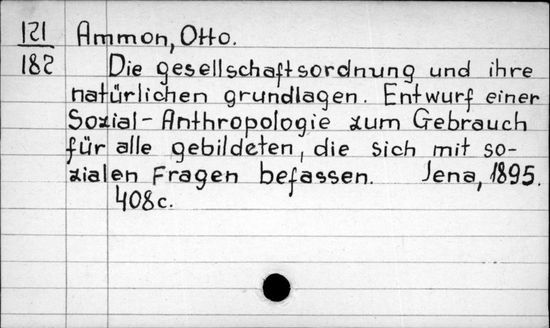 121 Ammon, Otto.
182 Die gesellschaftsordnung und ihre
natürlichen grundlagen. Entwurf einer
Sozial-Anthropologie zum Gebrauch
für alle gebildeten, die sich mit so-
zialen Fragen befassen. Jena, 1895.
408c.